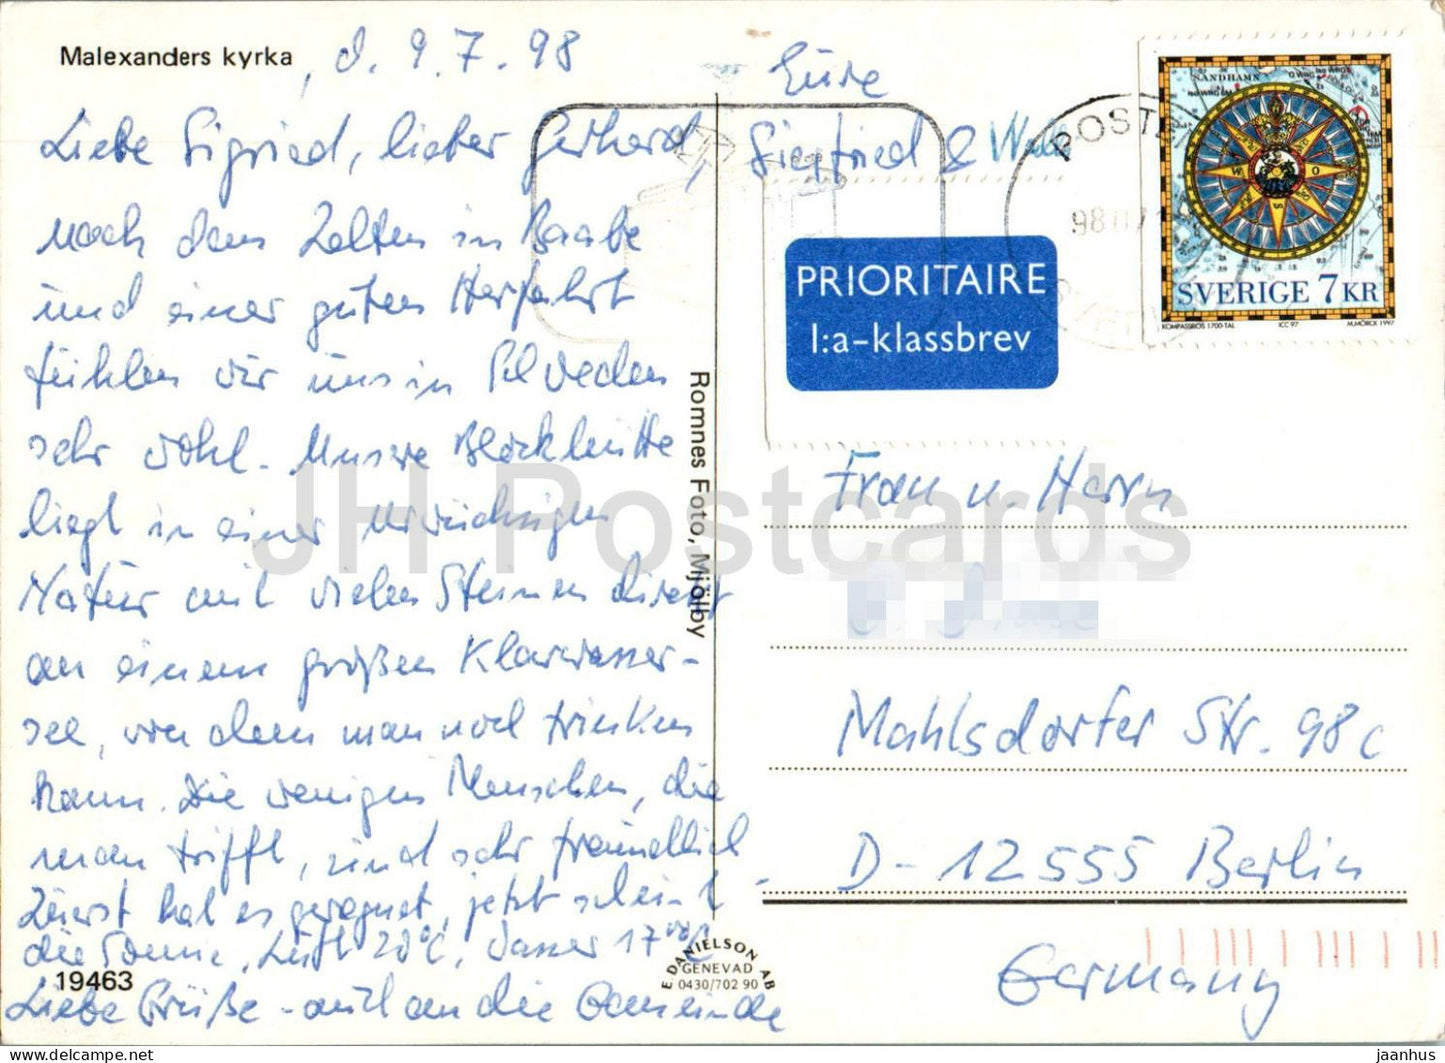 Malexanders kyrka, d. 9.7.98
Liebe Sigried, lieber Gerhard,
nach dem Zelten in Baabe
und einer guten Herfahrt
fühlen wir uns in Schweden
sehr wohl. Unsere Blockhütte
liegt in einer urwüchsigen
Natur mit vielen Steinen direkt
an einem großen Klarwasser-
see, von dem man noch trinken
kann. Die wenigen Menschen, die
man trifft, sind sehr freundlich.
Zuerst hat es geregnet, jetzt scheint
die Sonne, Luft 20°C, Wasser 17
Liebe Grüße - auch an die Gemeinde
19463
Eure
Siegfried &
Romnes Foto, Mjölby
E. DANIELSON AB
GENEVAD
0430/702 90
POSTEN
98 07
PRIORITAIRE
1:a-klassbrev
SANDHAMN
SVERIGE 7 KR
KOMPASSROS 1700-TAL ICC 97 M.MÖRCK 1997
Frau u. Herrn
Mahlsdorfer Str. 98c
D-12555 Berlin
Germany
JH Postcards
jaanhus | PicClick.com